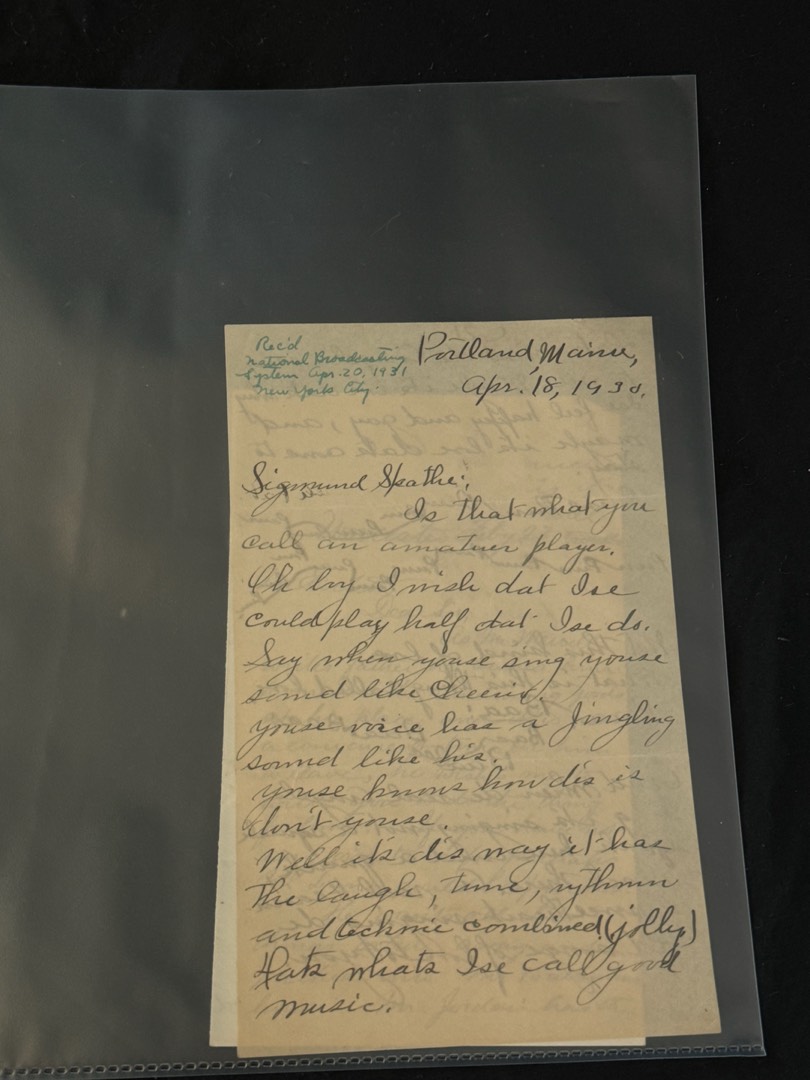 Rec'd
National Broadcasting
System Apr. 20, 1931
New York City.
Portland, Maine,
Apr. 18, 1931.
Sigmund Spathe:
Is that what you
call an amatuer player.
Oh boy I wish dat Ise
could play half dat Ise do.
Say when youse sing youse
sound like Cheerio.
youse voice has a Jingling
sound like his.
youse knows how dis is
don't youse.
Well it's dis way it has
the laugh, tune, rythmn
and technic combined (jolly)
Dats whats Ise call good
music.